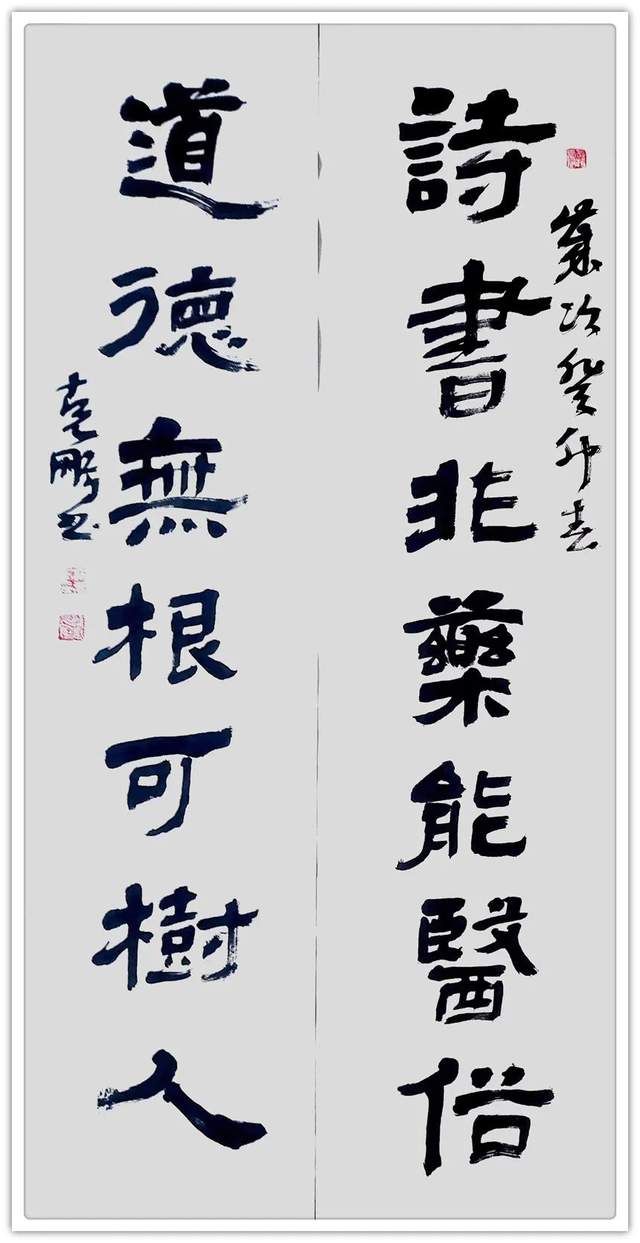 歲次癸卯春
詩書非藥能醫俗
道德無根可樹人
克鵬书